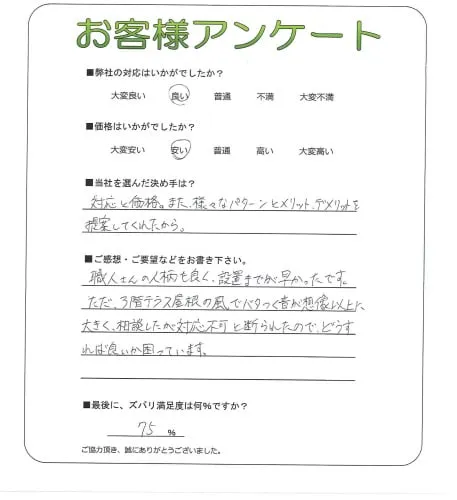 お客様アンケート
■弊社の対応はいかがでしたか？
大変良い 良い 普通 不満 大変不満
■価格はいかがでしたか？
大変安い 安い 普通 高い 大変高い
■当社を選んだ決め手は？
対応と価格。また、様々なパターンとメリット、デメリットを
提案してくれたから。
■ご感想・ご要望などをお書き下さい。
職人さんの人柄も良く、設置までが早かったです。
ただ、3階テラス屋根の風でバタつく音が想像以上に
大きく、相談したが対応不可と断られたので、どうす
れば良いか困っています。
■最後に、ズバリ満足度は何％ですか？
75 ％
ご協力頂き、誠にありがとうございました。